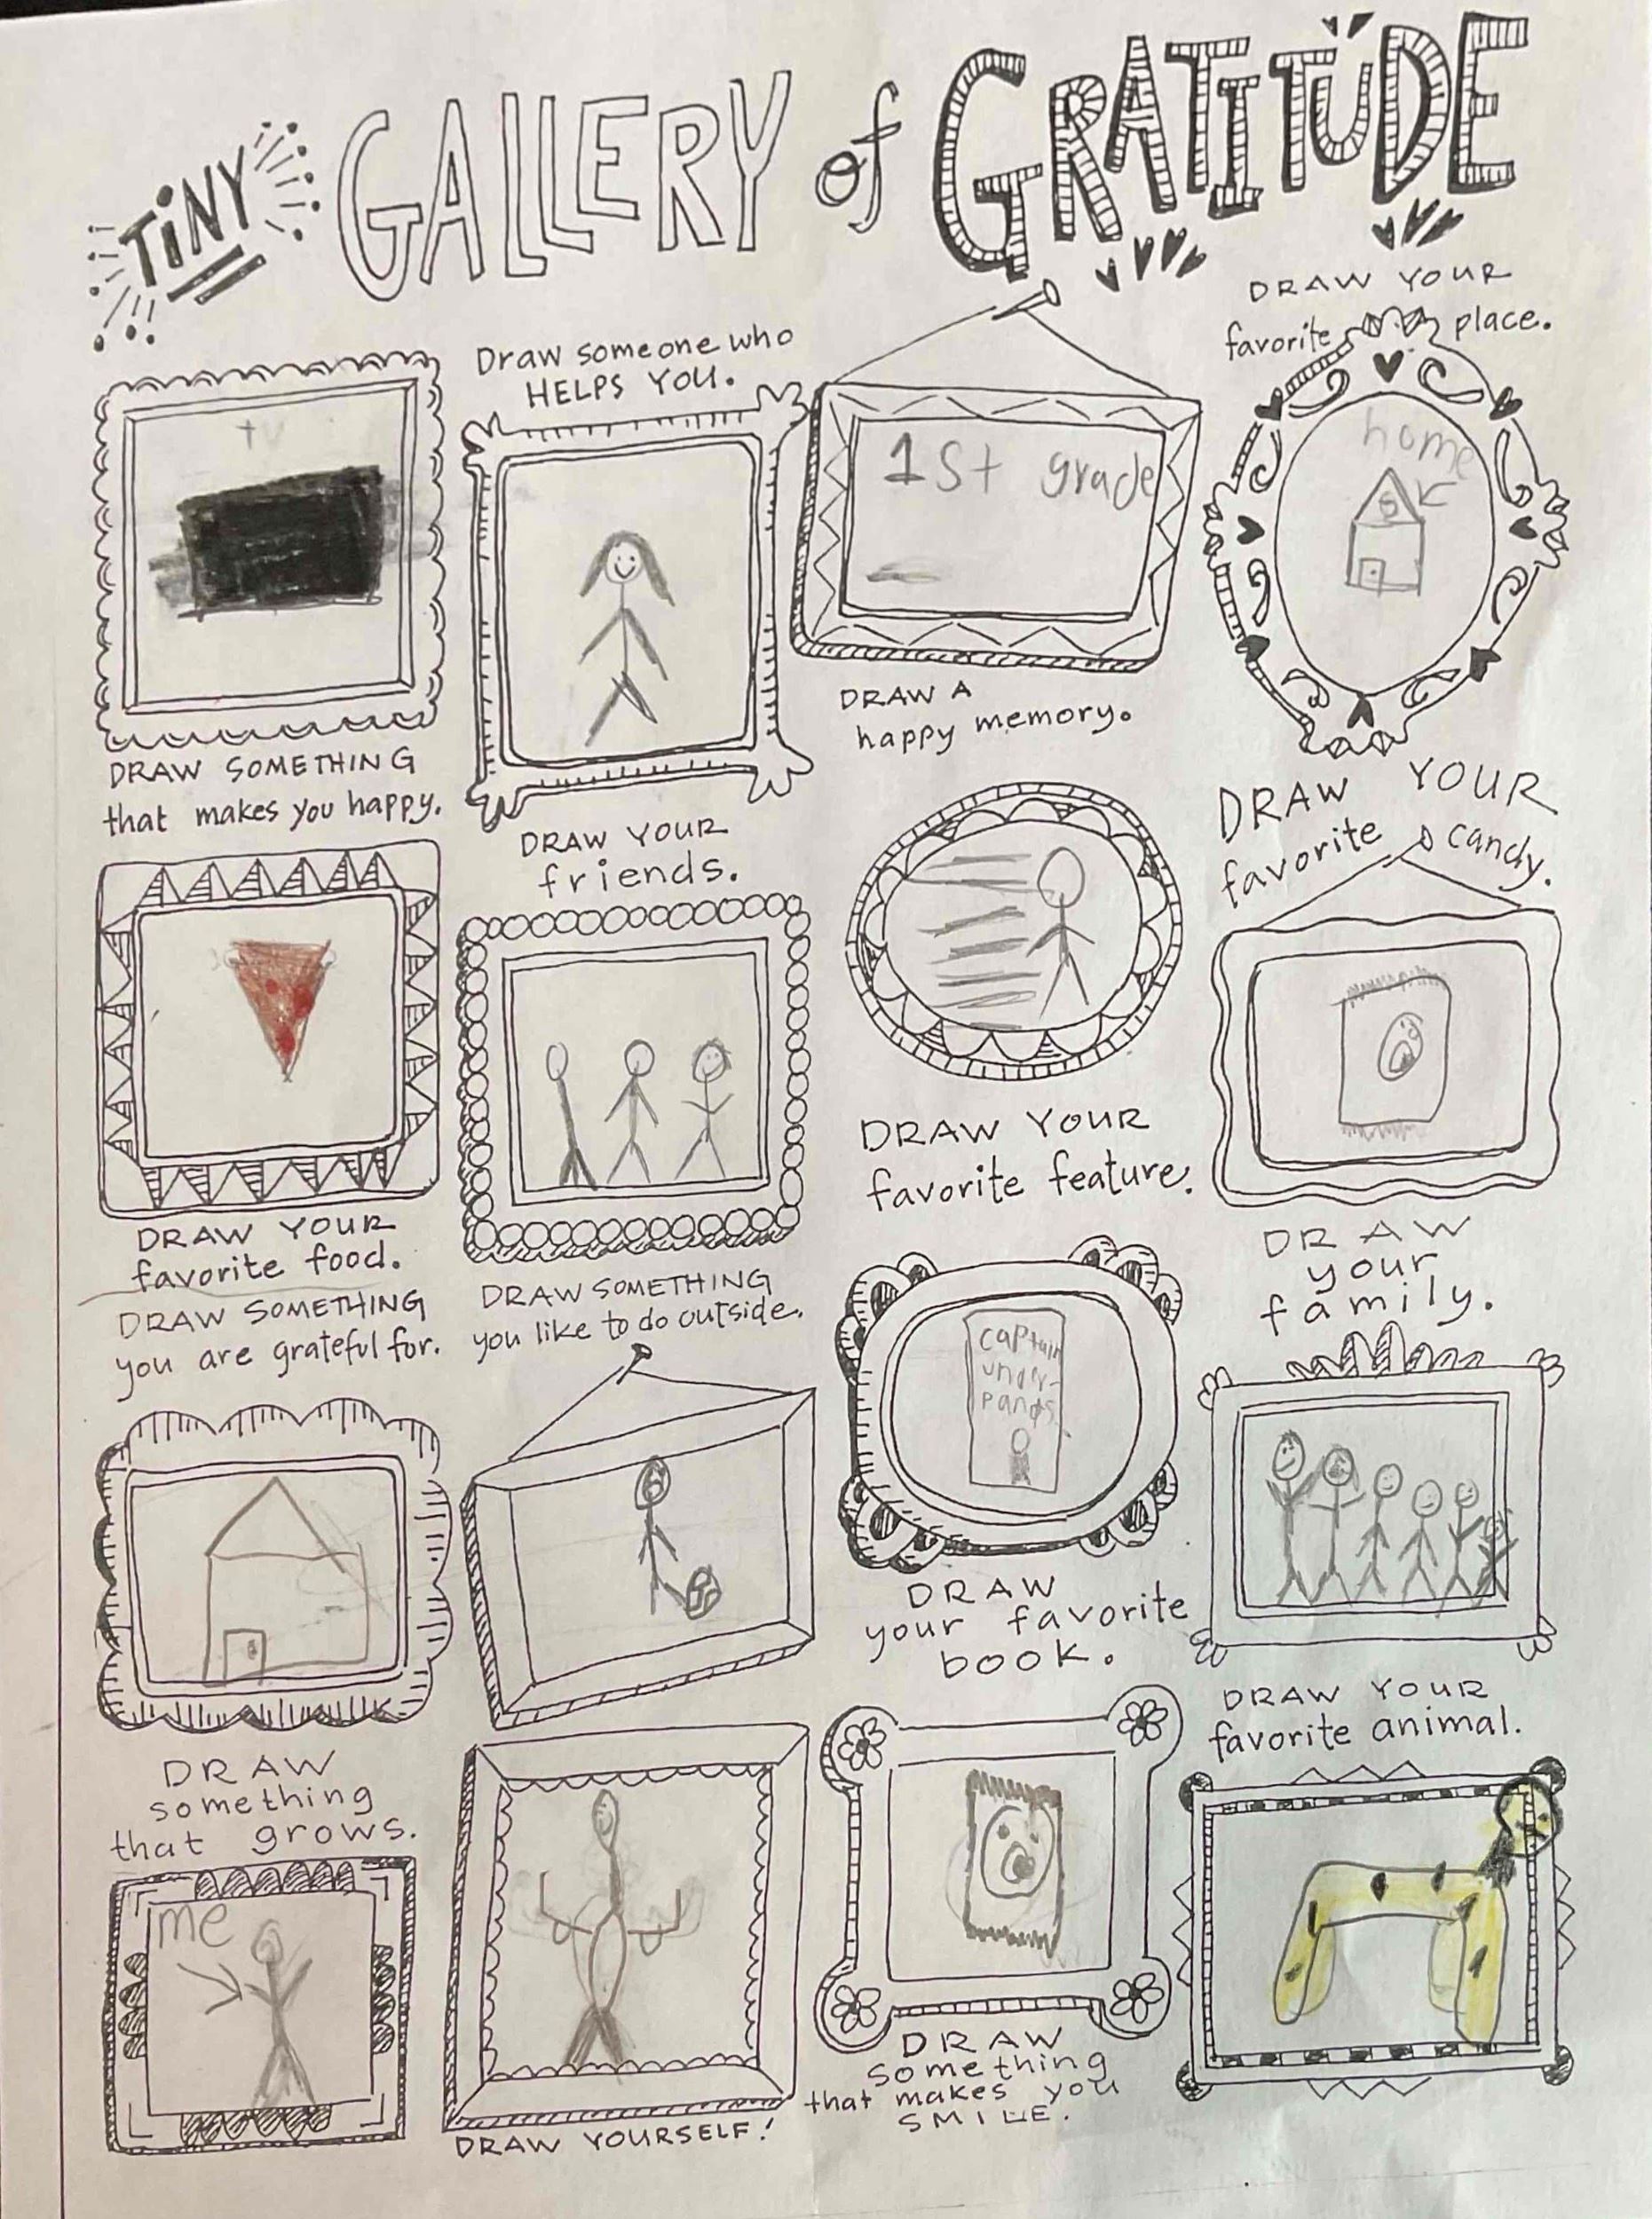 TiNY GALLERY of GRATITUDE
tv
DRAW SOMETHING
that makes you happy.
Draw someone who
HELPS YOU.
1st grade
DRAW A
happy memory.
DRAW YOUR
favorite place.
home
DRAW YOUR
favorite food.
DRAW YOUR
friends.
DRAW YOUR
favorite feature.
DRAW YOUR
favorite candy.
DRAW SOMETHING
you are grateful for.
DRAW SOMETHING
you like to do outside.
captain
under-
pands
DRAW
your favorite
book.
DRAW
your
family.
DRAW
something
that grows.
me
DRAW YOURSELF!
DRAW
something
that makes you
SMILE.
DRAW YOUR
favorite animal.